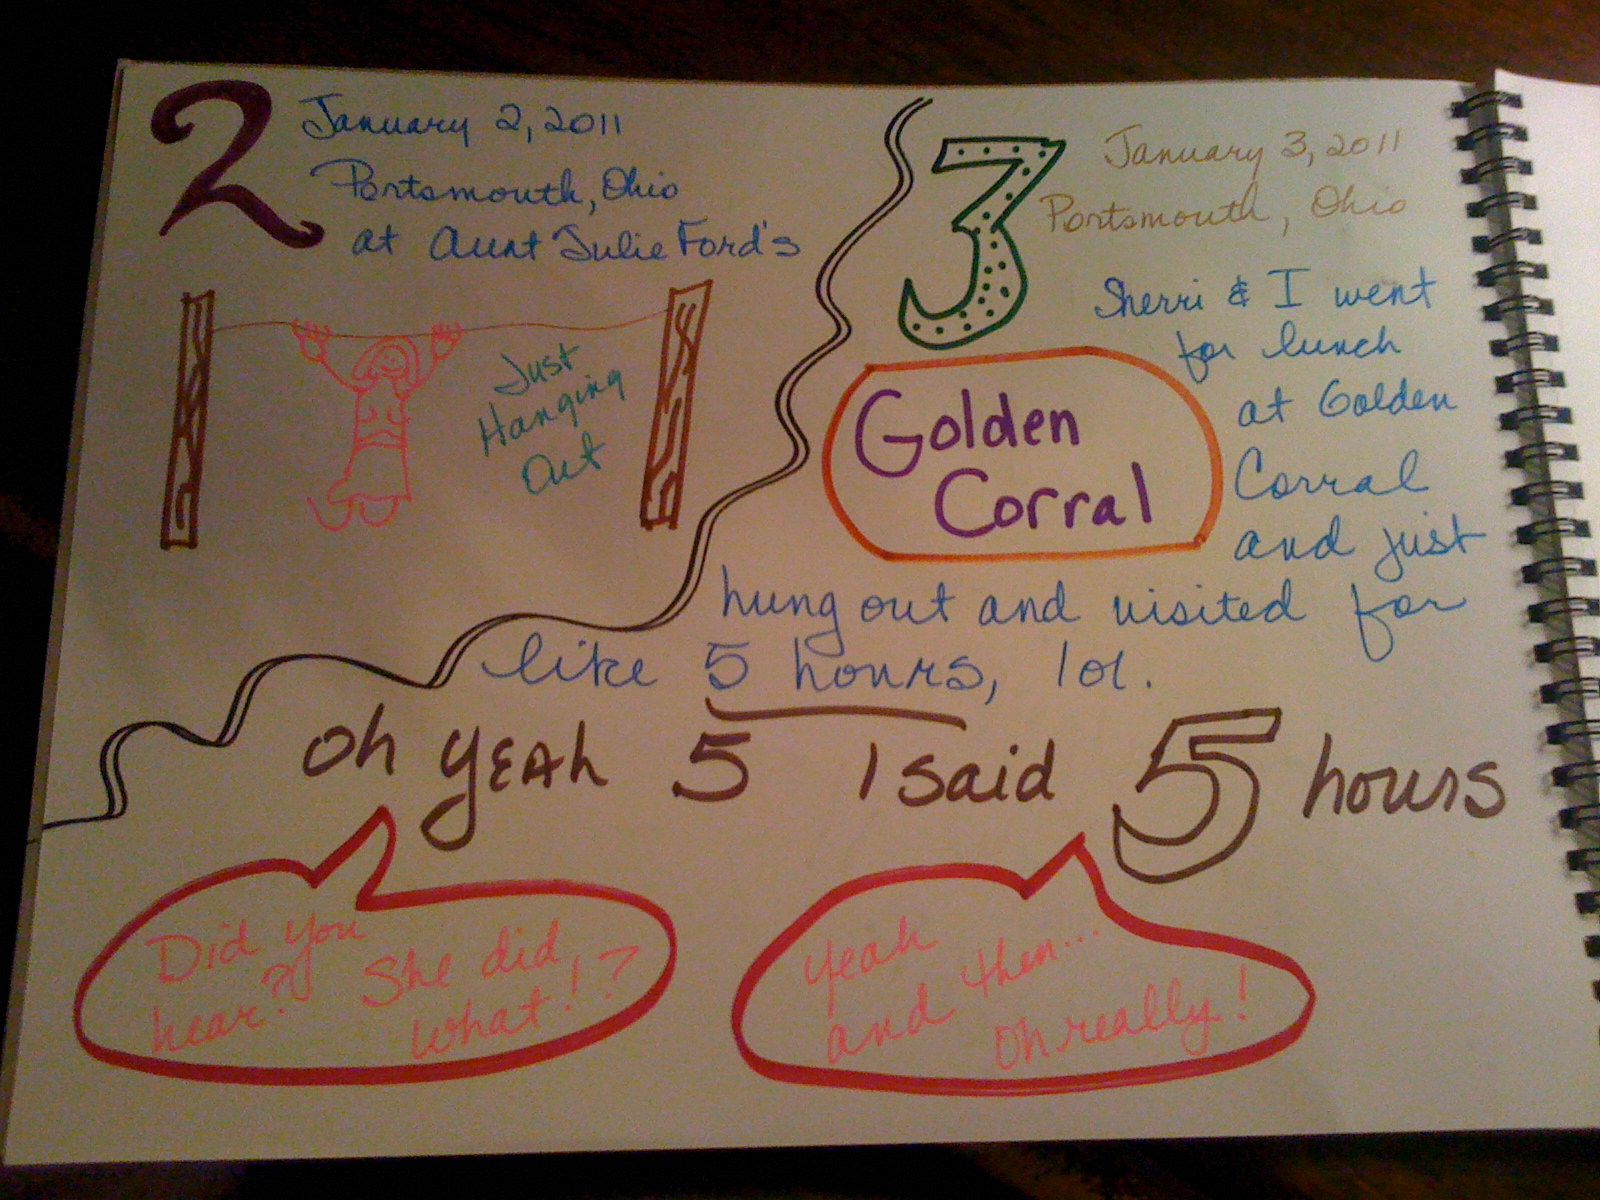 2
January 2, 2011
Portsmouth, Ohio
at Aunt Julie Ford's
Just
Hanging
Out
3
January 3, 2011
Portsmouth, Ohio
Sherri & I went
for lunch
at Golden
Corral
and just
hung out and visited for
like 5 hours, lol.
Golden
Corral
Oh yeah 5 I said 5 hours
Did you
hear? She did
what!?
Yeah
and then...
Oh really!